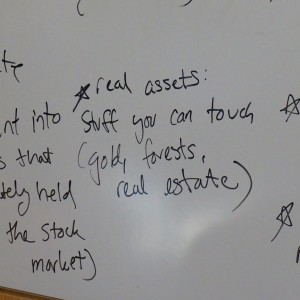 real assets:
into stuff you can touch
that (gold, forests,
held real estate)
the stock
market)